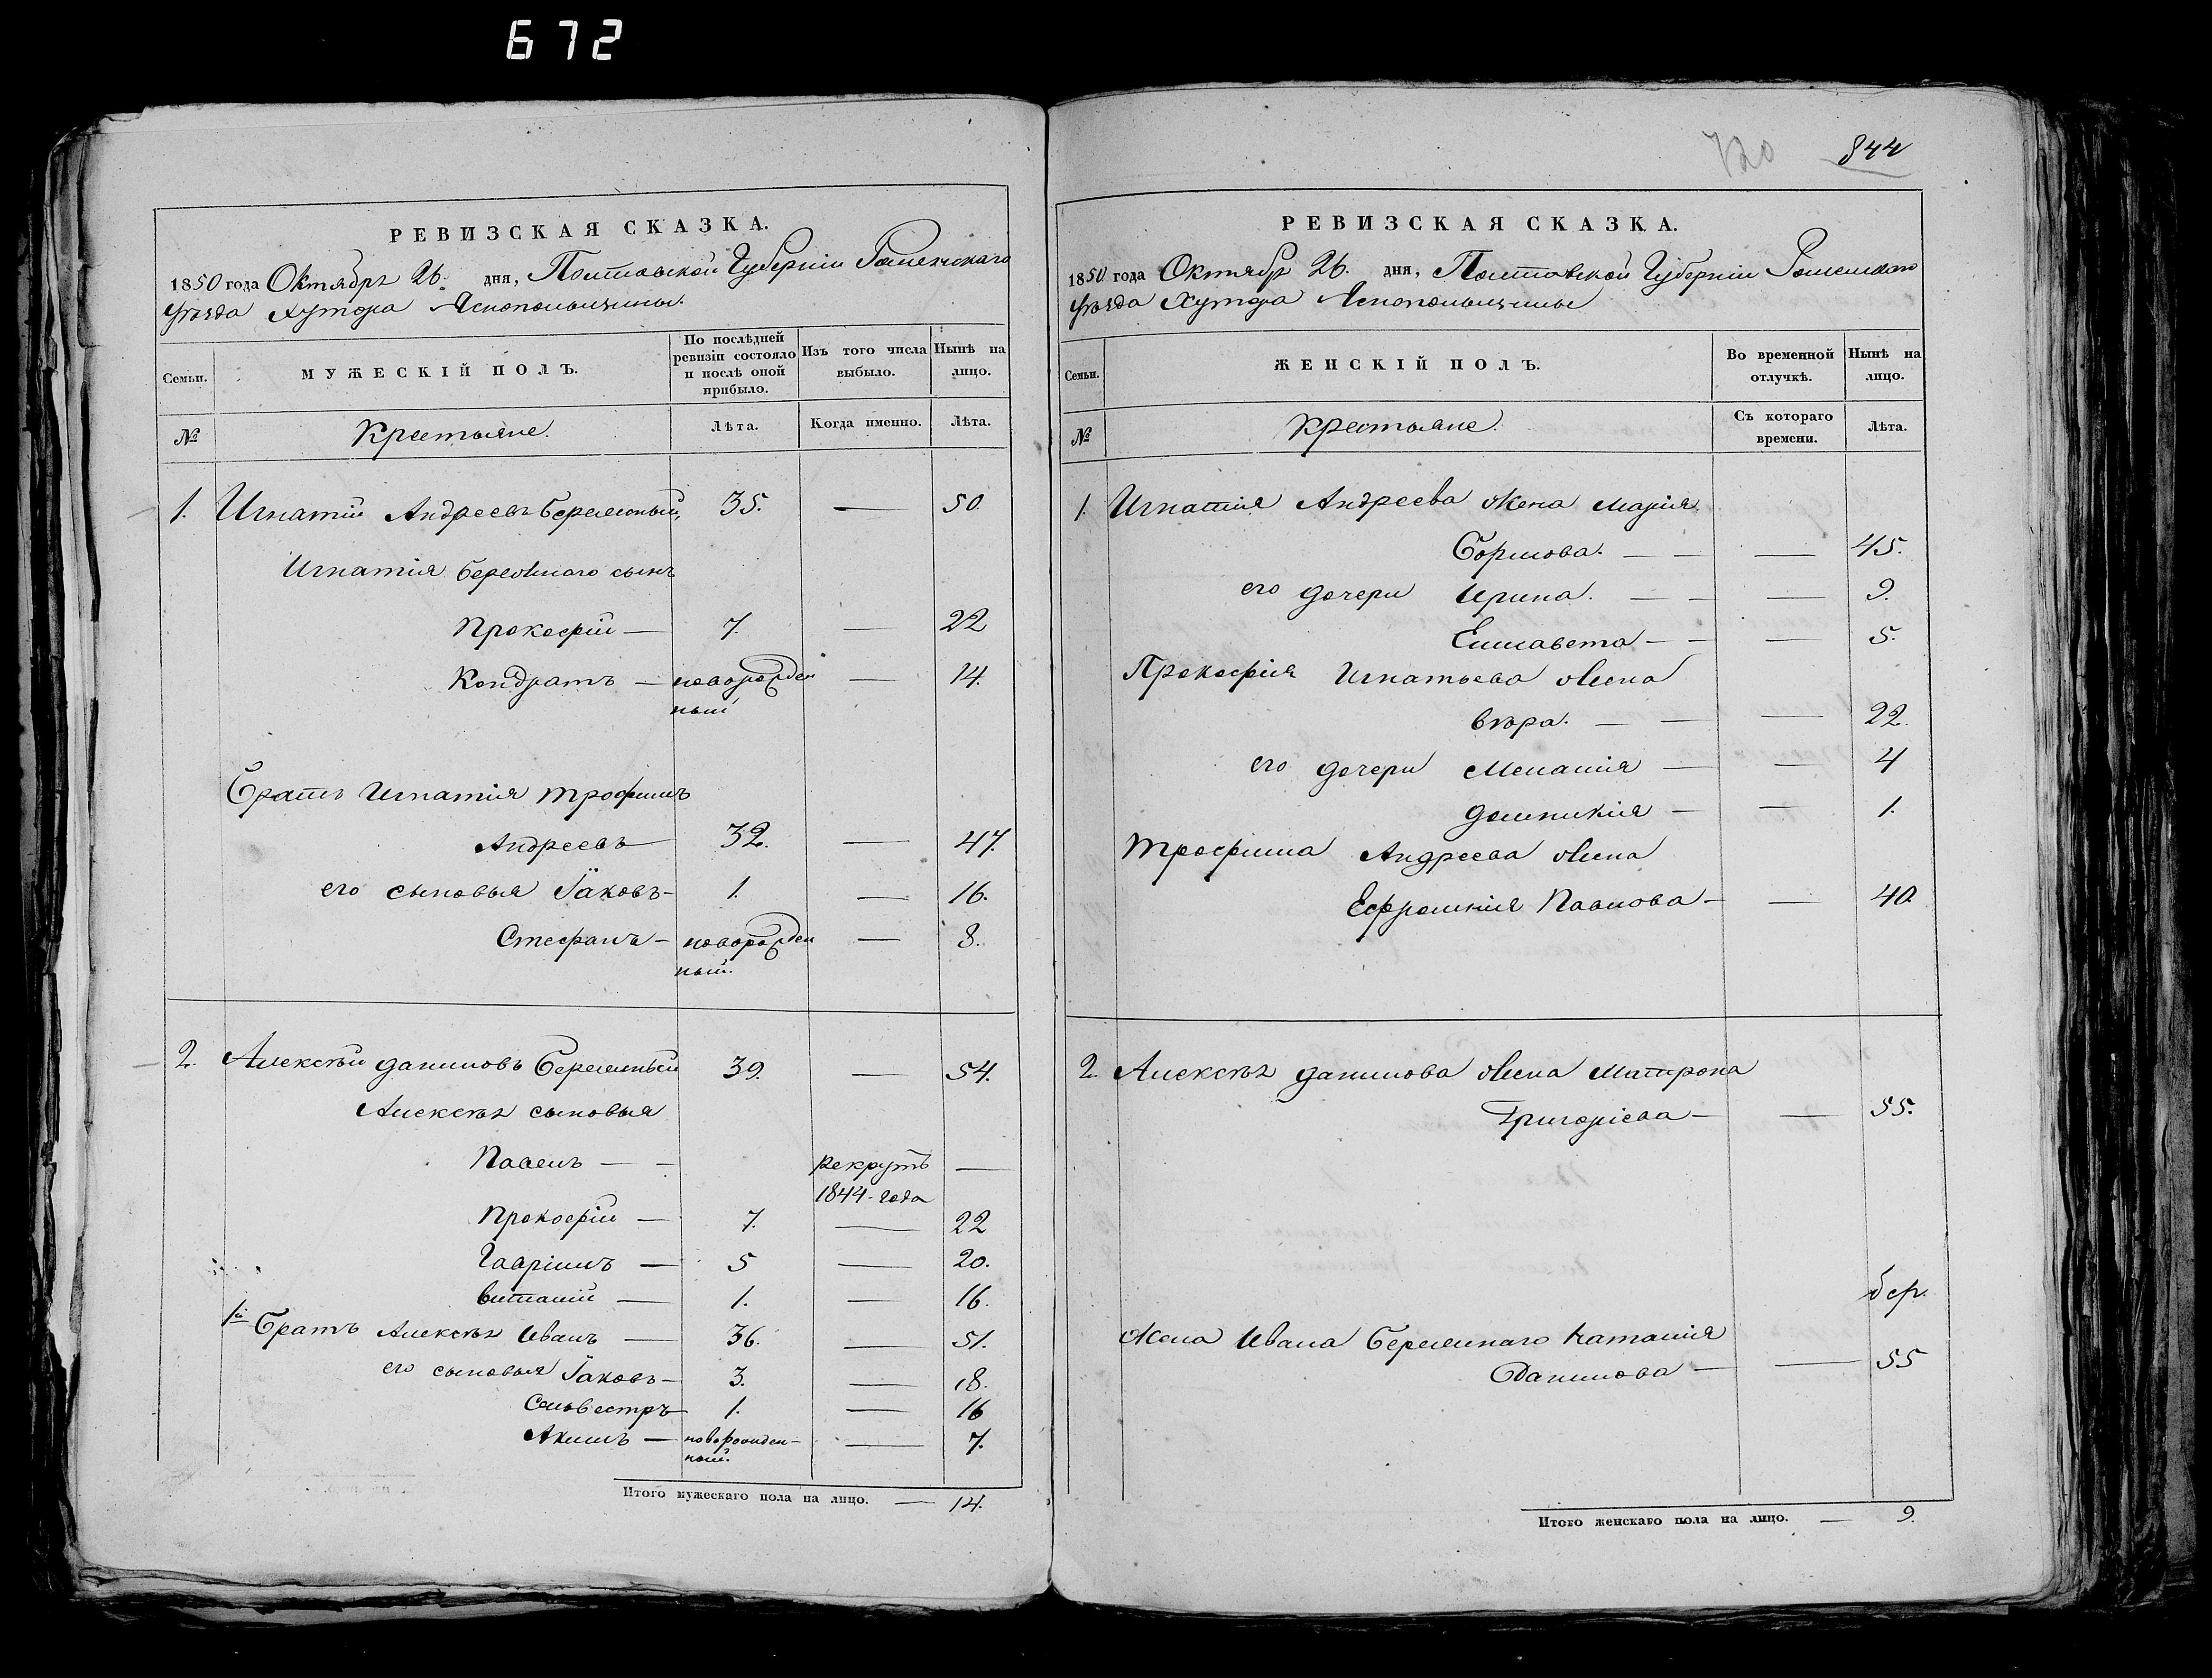 672
РЕВИЗСКАЯ СКАЗКА.
1850 года Октября 26. дня, Полтавской Губернии Роменскаго
уѣзда хутора Яснопольщины.
Семьи. МУЖЕСКІЙ ПОЛЪ. По послѣдней ревизіи состояло и послѣ оной прибыло. Изъ того числа выбыло. Нынѣ на лицо.
№ Крестьяне. Лѣта. Когда именно. Лѣта.
1. Игнатій Андреевъ 35. — 50.
Игнатія сынъ
Прокофій — 7. — 22
Кондратъ — новорожден — 14.
ный
Братъ Игнатія Трофимъ
Андреевъ 32. — 47.
его сыновья Іаковъ — 1. — 16.
Стефанъ — новорожден — 8.
ный.
2. Алексѣй Даниловъ 39. — 54.
Алексѣя сыновья
Павелъ — — рекрутъ —
1844 года
Прокофій — 7. — 22
Гавріилъ — 5 — 20.
Виталій — 1. — 16.
1й Братъ Алексѣя Иванъ — 36. — 51.
его сыновья Іаковъ — 3. — 18.
Сильвестръ 1. — 16
Акимъ — новорожден- — 7.
ный.
Итого мужескаго пола на лицо. — 14.
720 844
РЕВИЗСКАЯ СКАЗКА.
1850 года Октября 26. дня, Полтавской Губерніи Роменскаго
уѣзда Хутора Яснопольщины
Семьи. ЖЕНСКІЙ ПОЛЪ. Во временной отлучкѣ. Нынѣ на лицо.
№ Крестьяне. Съ котораго времени. Лѣта.
1. Игнатія Андреева жена Марія
— — — 45.
его дочери Ирина. — — — 9.
Елисавета — — — 5.
Прокофія Игнатьева жена
Вѣра. — — — 22.
его дочери Меланія — — 4
Домникія — — 1.
Трофима Андреева жена
Ефросинія Павлова — — 40.
2. Алексѣя Данилова жена Матрона
Григоріева — — 55.
Жена Ивана Наталія
Данилова — — 55
Итого женскаго пола на лицо. — 9.